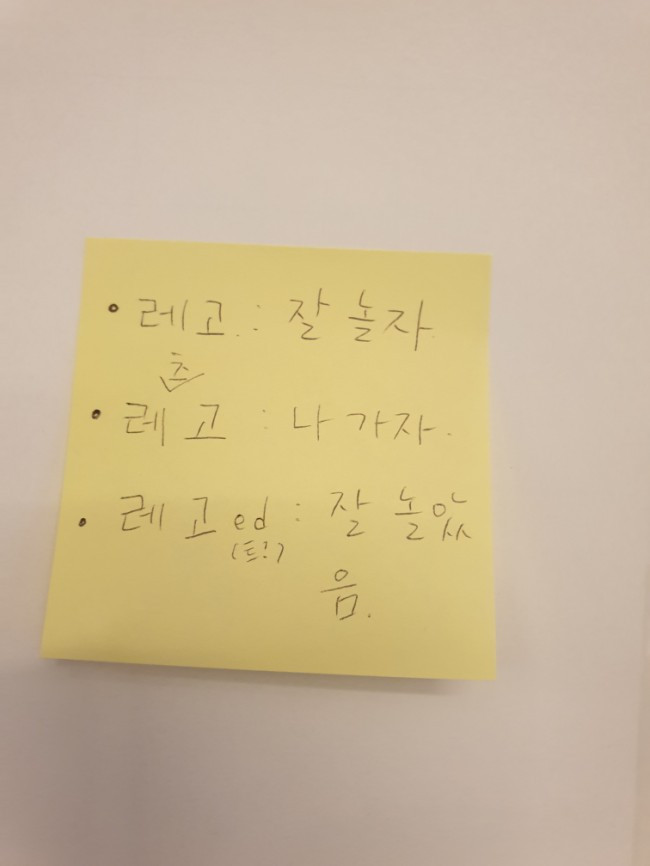 • 레고 : 잘 놀자
츠
• 레고 : 나가자.
• 레고ed : 잘 놀았
(트?)
음.